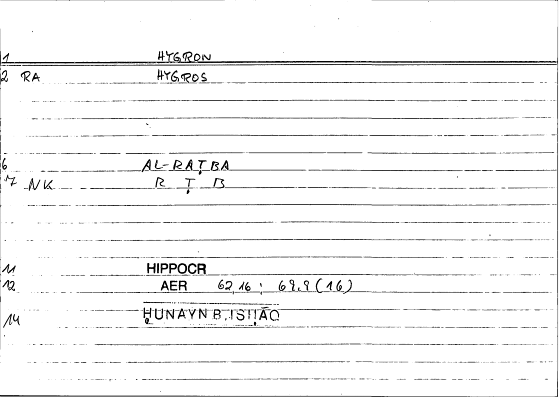 1 HYGRON
2 RA HYGROS
6 AL-RAṬBA
7 NK R Ṭ B
11 HIPPOCR
12 AER 62,16 : 69,9 (16)
14 ḤUNAYN B. ISḤĀQ